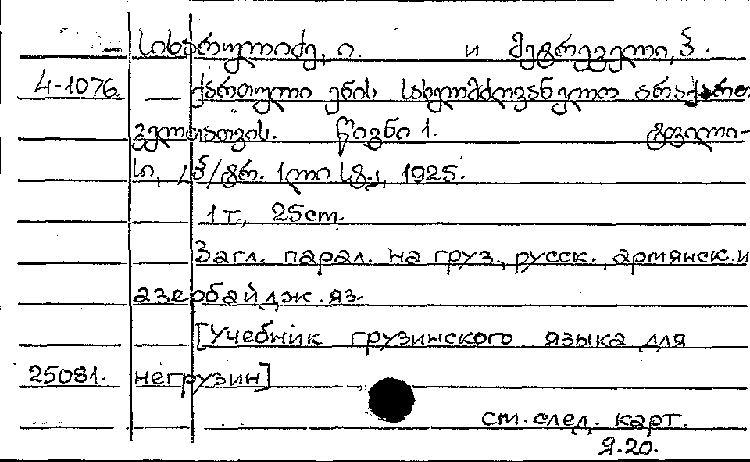 სიხარულიძე, ი. и მეგრელელი, ვ.
4-1076 ქართული ენის სახელმძღვანელო არაქართ
ველთათვის. წიგნი 1. ტფილი-
სი, 1925.
1 т., 25 ст.
Загл. парал. на груз., русск., армянск. и
азербайдж. яз.
[Учебник грузинского языка для
25081. негрузин]
ст. след. карт.
Я.20.